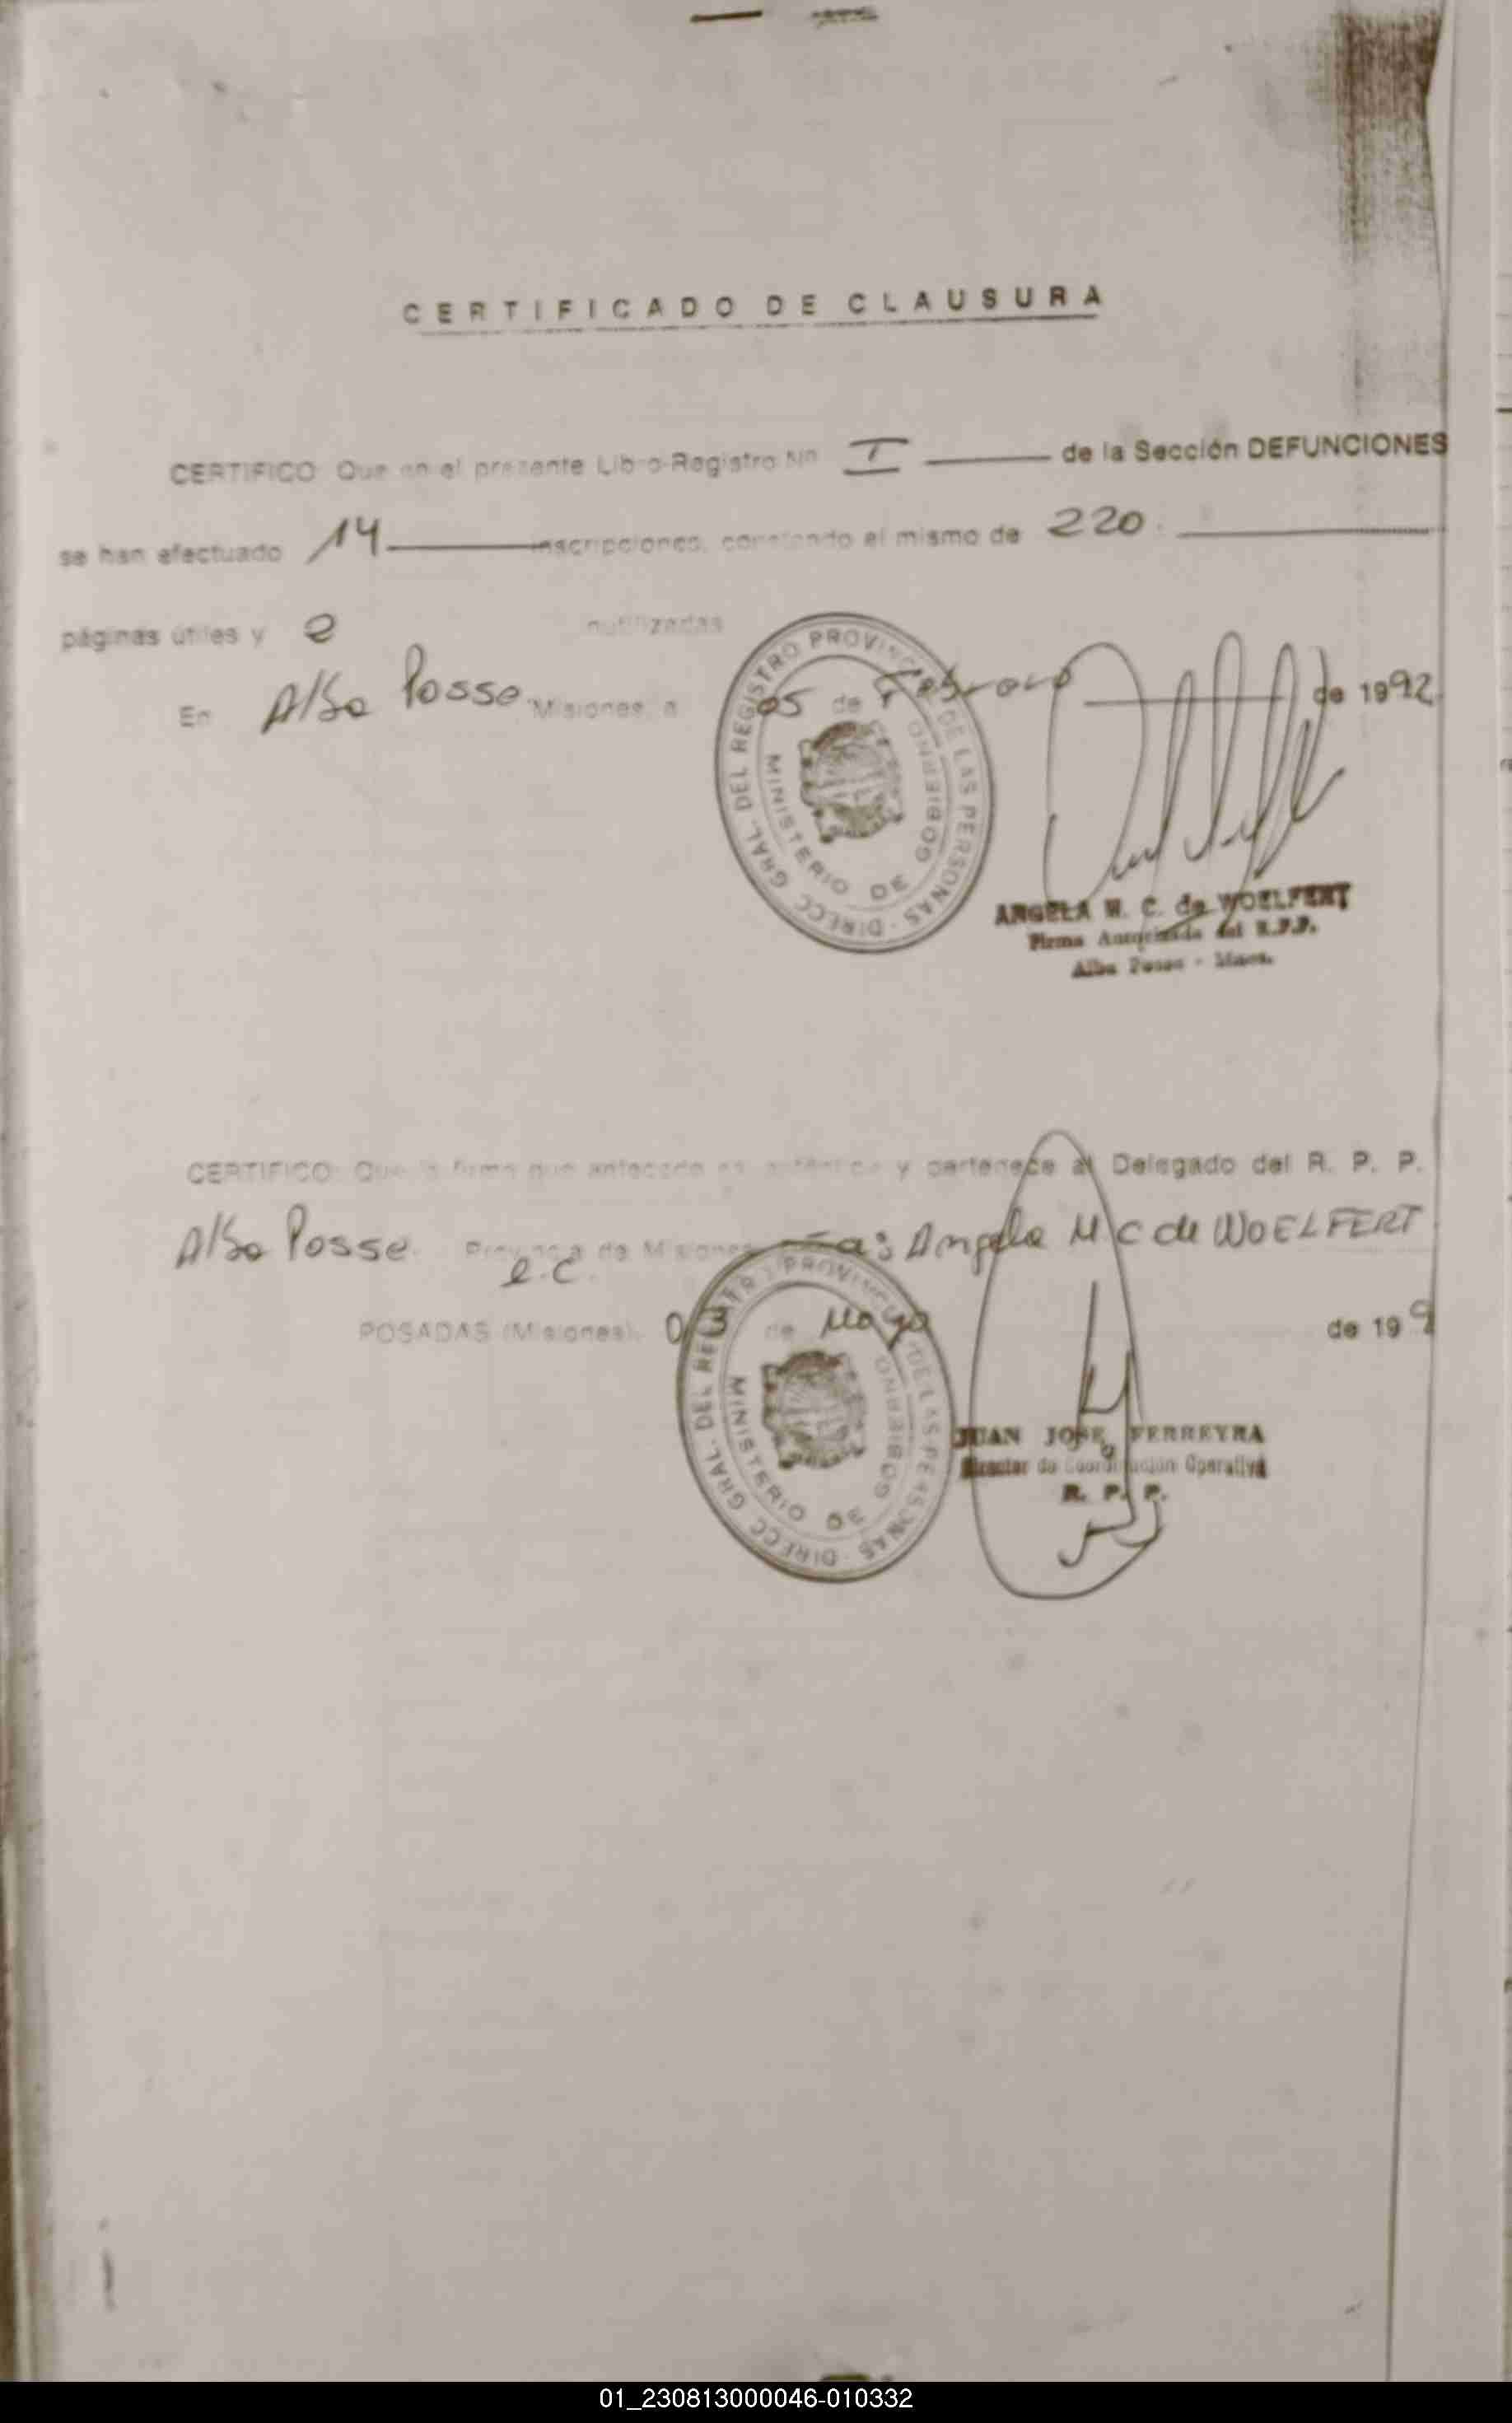 CERTIFICADO DE CLAUSURA
CERTIFICO: Que en el presente Libro-Registro Nº I de la Sección DEFUNCIONES
se han efectuado 14 inscripciones, constando el mismo de 220
páginas útiles y 2 inutilizadas
En Alba Posse Misiones, a 05 de Febrero de 1992
DIRECC. GRAL. DEL REGISTRO PROVINCIAL DE LAS PERSONAS
MINISTERIO DE GOBIERNO
ANGELA M. C. de WOELFERT
Firma Autorizada del R.P.P.
Alba Posse - Mnes.
CERTIFICO: Que la firma que antecede es auténtica y pertenece al Delegado del R. P. P.
Alba Posse Provincia de Misiones Angela M C de WOELFERT
e.c.
POSADAS (Misiones), 03 de Mayo de 199
DIRECC. GRAL. DEL REGISTRO PROVINCIAL DE LAS PERSONAS
MINISTERIO DE GOBIERNO
JUAN JOSE FERREYRA
Director de Coordinación Operativa
R. P. P.
01_230813000046-010332